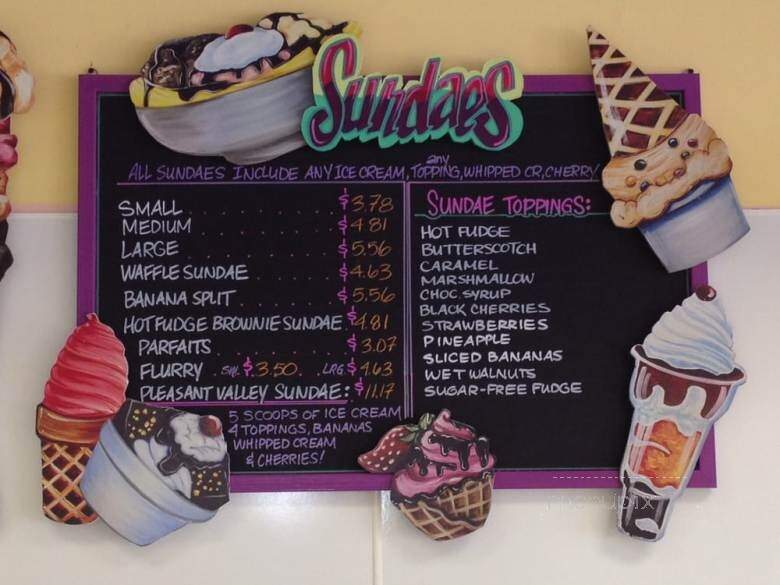 Sundaes
ALL SUNDAES INCLUDE ANY ICE CREAM, any TOPPING, WHIPPED CR, CHERRY
SMALL . . . . . . . $3.78
MEDIUM . . . . . . $4.81
LARGE . . . . . . . $5.56
WAFFLE SUNDAE . . . . $4.63
BANANA SPLIT . . . . . $5.56
HOT FUDGE BROWNIE SUNDAE . $4.81
PARFAITS . . . . . . $3.07
FLURRY . SM. $3.50. LRG. $4.63
PLEASANT VALLEY SUNDAE: $11.17
5 SCOOPS OF ICE CREAM
4 TOPPINGS, BANANAS
WHIPPED CREAM
& CHERRIES!
SUNDAE TOPPINGS:
HOT FUDGE
BUTTERSCOTCH
CARAMEL
MARSHMALLOW
CHOC. SYRUP
BLACK CHERRIES
STRAWBERRIES
PINEAPPLE
SLICED BANANAS
WET WALNUTS
SUGAR-FREE FUDGE